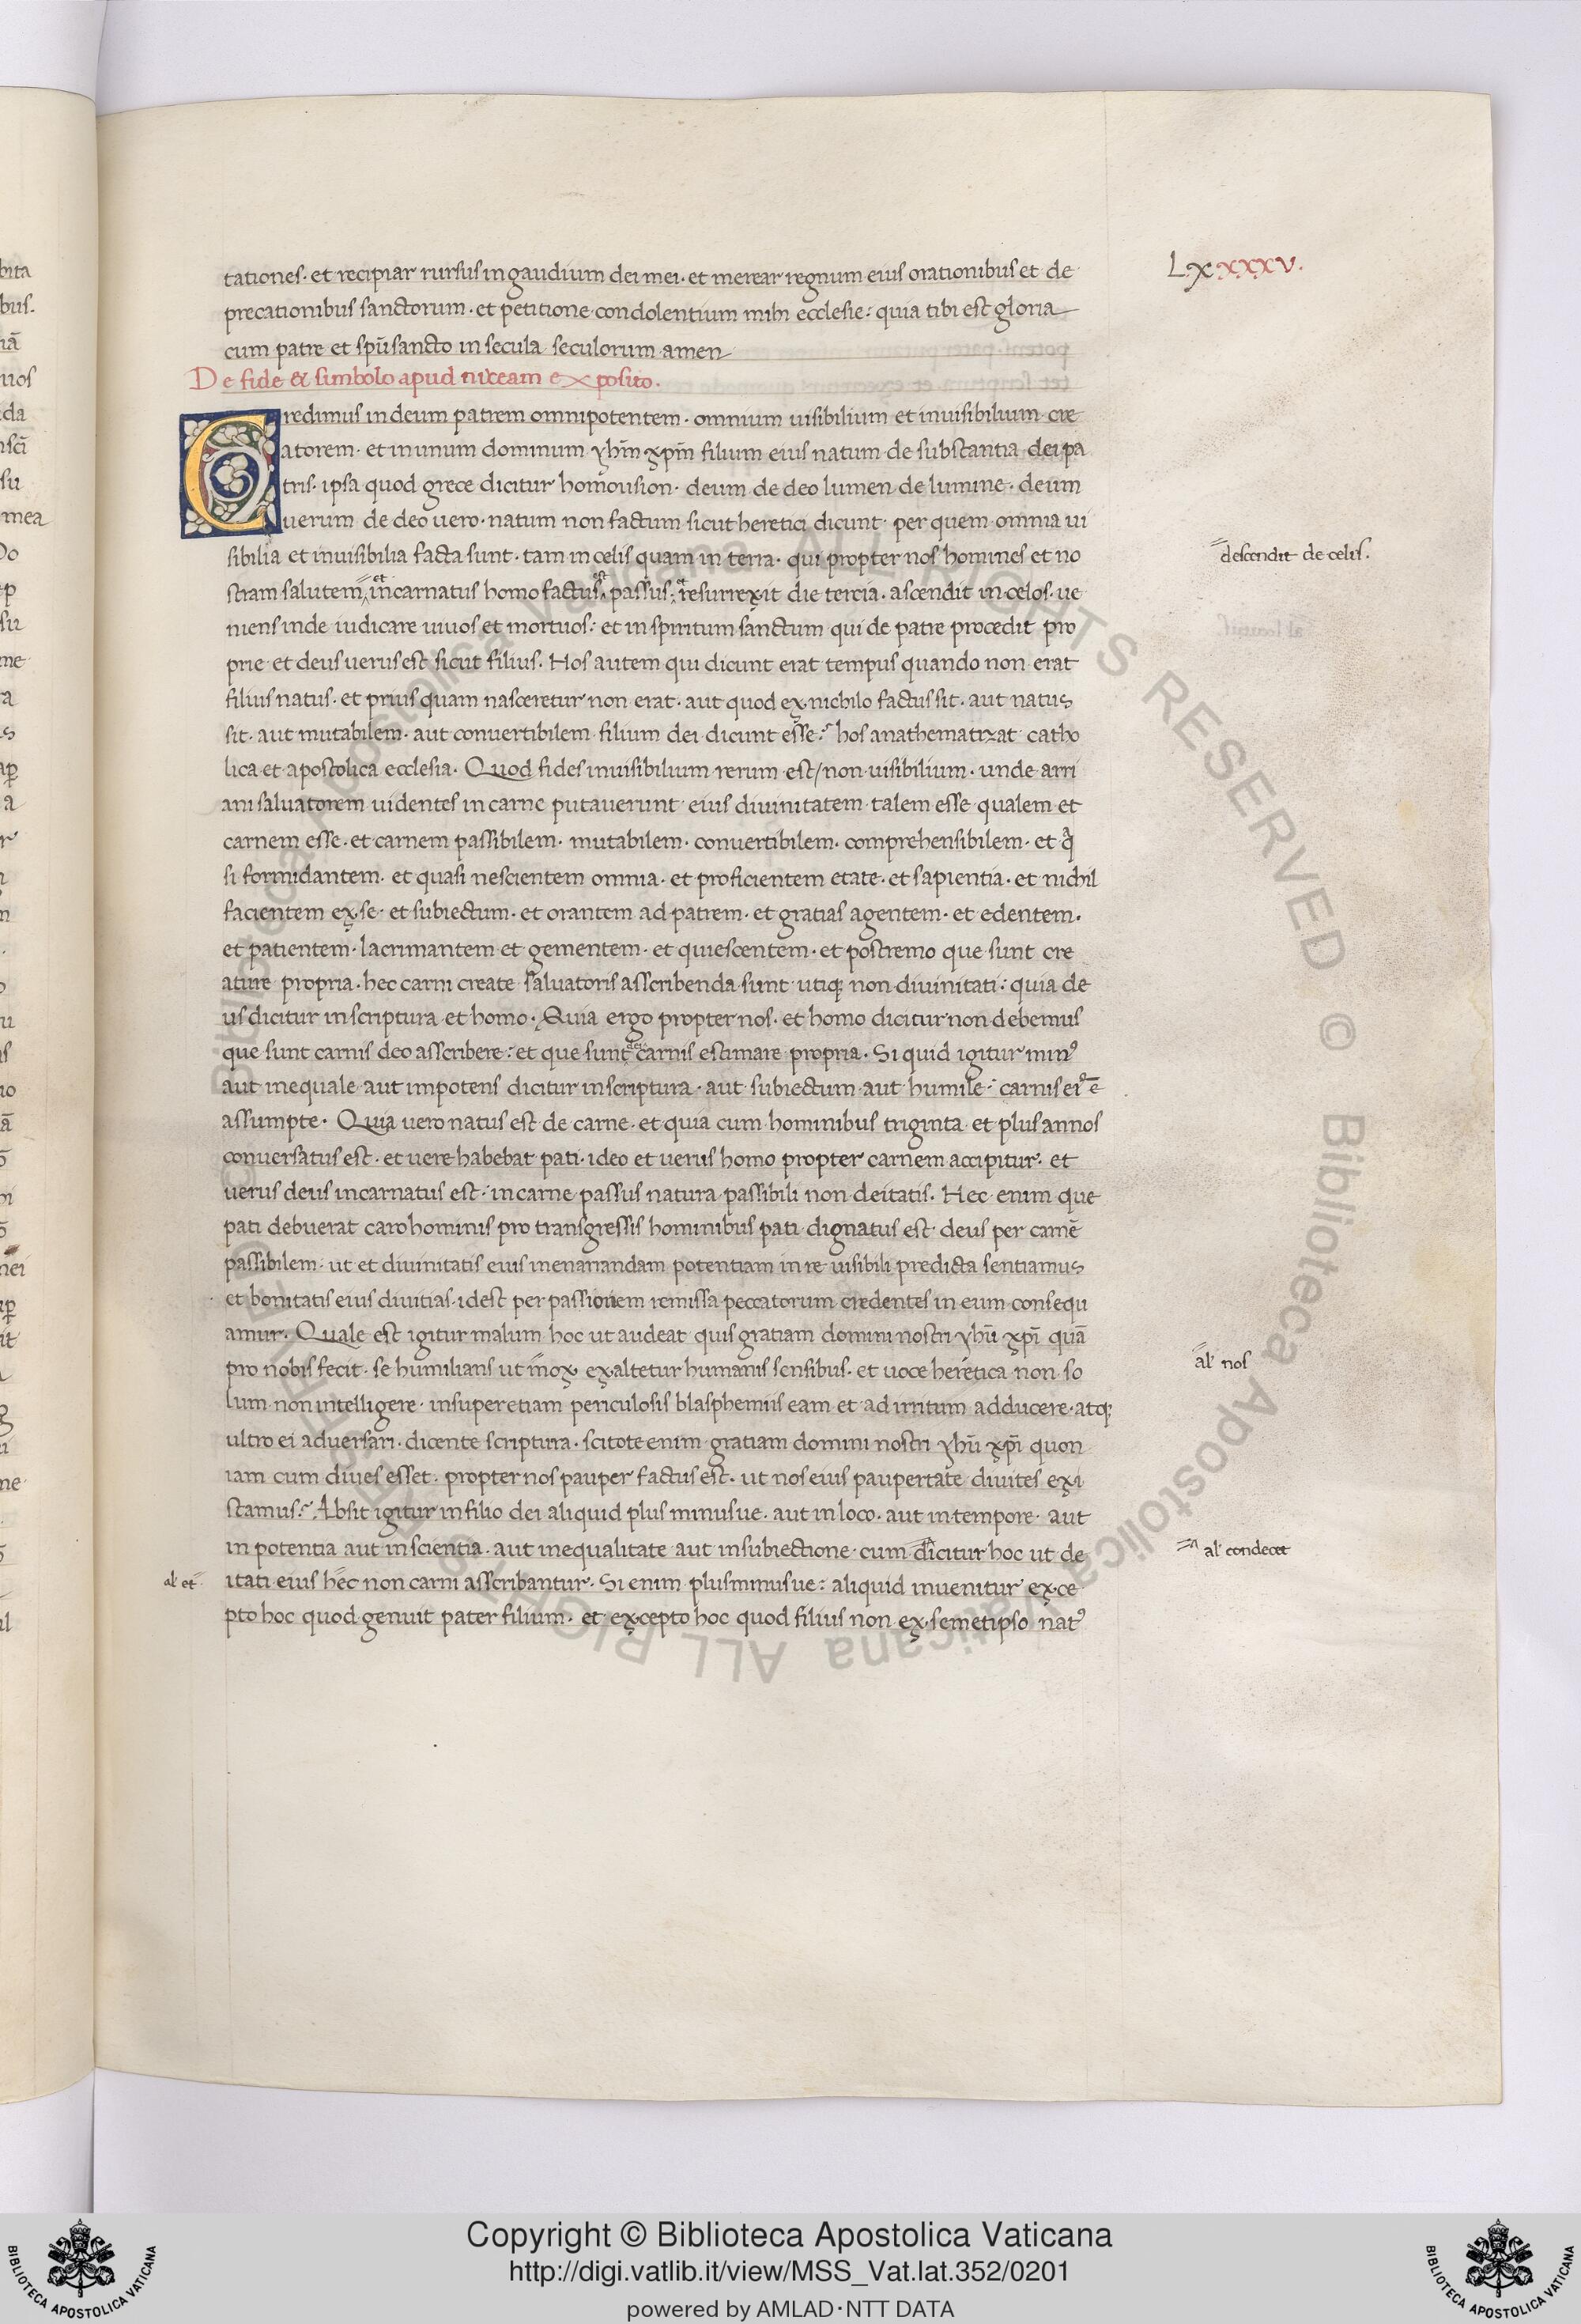 Lxxxxv.
tationes. et recipiar rursus in gaudium dei mei. et merear regnum eius orationibus et de
precationibus sanctorum. et petitione condolentium mihi ecclesie: quia tibi est gloria
cum patre et spū sancto in secula seculorum amen
De fide & simbolo apud niceam exposito.
Credimus in deum patrem omnipotentem. omnium uisibilium et inuisibilium cre
atorem. et in unum dominum yhm̄ xpm̄ filium eius natum de substantia dei pa
tris. ipsa quod grece dicitur homousion. deum de deo lumen de lumine. deum
uerum de deo uero. natum non factum sicut heretici dicunt. per quem omnia ui
sibilia et inuisibilia facta sunt. tam in celis quam in terra. qui propter nos homines et no
descendit de celis.
stram salutem et incarnatus homo factus est passus. et resurrexit die tercia. ascendit in celos. ue
niens inde iudicare uiuos et mortuos: et in spiritum sanctum qui de patre procedit pro
prie et deus uerus est sicut filius. Hos autem qui dicunt erat tempus quando non erat
filius natus. et prius quam nasceretur non erat. aut quod ex nichilo factus sit. aut natus
sit. aut mutabilem. aut conuertibilem filium dei dicunt esse: hos anathematizat catho
lica et apostolica ecclesia. Quod fides inuisibilium rerum est/non uisibilium. unde arri
ani saluatorem uidentes in carne putauerunt eius diuinitatem talem esse qualem et
carnem esse. et carnem passibilem. mutabilem. conuertibilem. comprehensibilem. et qa
si formidantem. et quasi nescientem omnia. et proficientem etate. et sapientia. et nichil
facientem ex se. et subiectum. et orantem ad patrem. et gratias agentem. et edentem.
et patientem. lacrimantem et gementem. et quiescentem. et postremo que sunt cre
ature propria. hec carni create saluatoris asscribenda sunt utiq; non diuinitati: quia de
us dicitur in scriptura et homo. Quia ergo propter nos. et homo dicitur non debemus
que sunt carnis deo asscribere: et que sunt dei carnis estimare propria. Si quid igitur min9
aut inequale aut impotens dicitur in scriptura. aut subiectum aut humile: carnis ei9 ē
assumpte. Quia uero natus est de carne. et quia cum hominibus triginta et plus annos
conuersatus est. et uere habebat pati. ideo et uerus homo propter carnem accipitur. et
uerus deus incarnatus est: in carne passus natura passibili non deitatis. Hec enim que
pati debuerat caro hominis pro transgressis hominibus pati dignatus est. deus per carnē
passibilem. ut et diuinitatis eius inenarrandam potentiam in re uisibili predicta sentiamus
et bonitatis eius diuitias. idest per passionem remissa peccatorum credentes in eum consequ
amur. Quale est igitur malum hoc ut audeat quis gratiam domini nostri yhū xpī quā
pro nobis fecit. se humilians ut mox exaltetur humanis sensibus. et uoce heretica non so
al' nos
lum non intelligere. insuper etiam periculosis blasphemiis eam et ad irritum adducere. atq;
ultro ei aduersari. dicente scriptura. scitote enim gratiam domini nostri yhū xpī quon
iam cum diues esset. propter nos pauper factus est. ut nos eius paupertate diuites exi
stamus: Absit igitur in filio dei aliquid plus minusue. aut in loco. aut in tempore. aut
in potentia aut in scientia. aut inequalitate aut in subiectione. cum dicitur hoc ut de
al' condecet
al' et
itati eius hec non carni asscribantur. Si enim plus minusue: aliquid inuenitur exce
pto hoc quod genuit pater filium. et excepto hoc quod filius non ex semetipso nat9
Copyright © Biblioteca Apostolica Vaticana
http://digi.vatlib.it/view/MSS_Vat.lat.352/0201
powered by AMLAD·NTT DATA